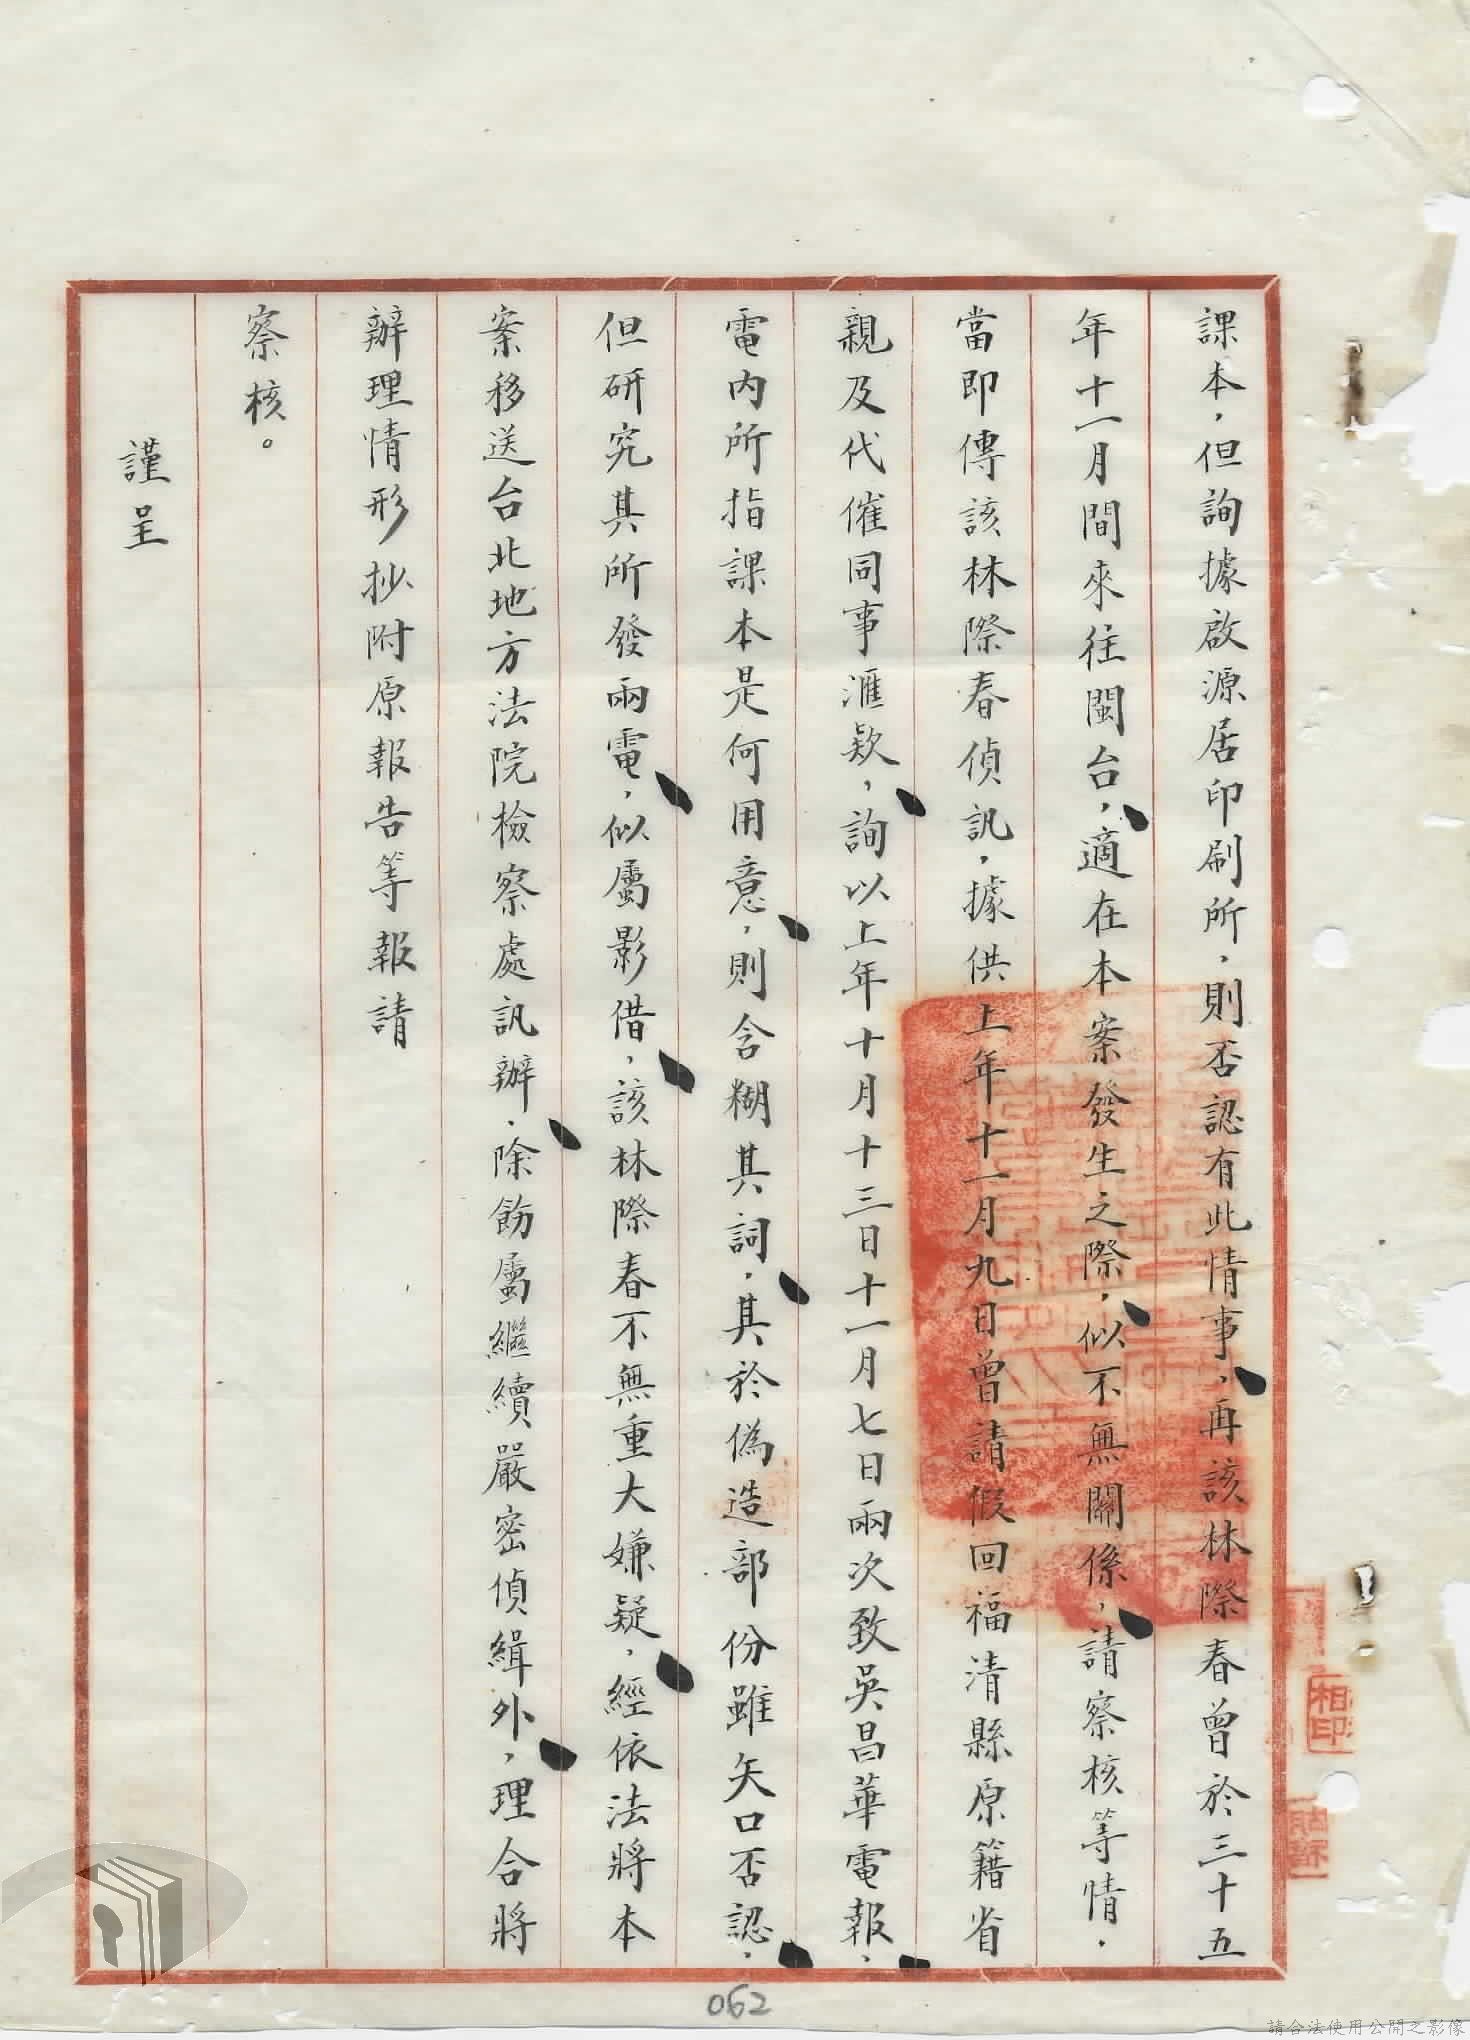 課本，但詢據啟源居印刷所，則否認有此情事，再該林際春曾於三十五
年十一月間來往閩台，適在本案發生之際，似不無關係，請察核等情，
當即傳該林際春偵訊，據供上年十一月九日曾請假回福清縣原籍省
親及代催同事滙欵，詢以上年十月十三日十一月七日兩次致吳昌華電報，
電內所指課本是何用意，則含糊其詞，其於偽造部份雖矢口否認，
但研究其所發兩電，似屬影借，該林際春不無重大嫌疑，經依法將本
案移送台北地方法院檢察處訊辦，除飭屬繼續嚴密偵緝外，理合將
辦理情形抄附原報告等報請
察核。
謹呈
相印
062
請合法使用公開之影像